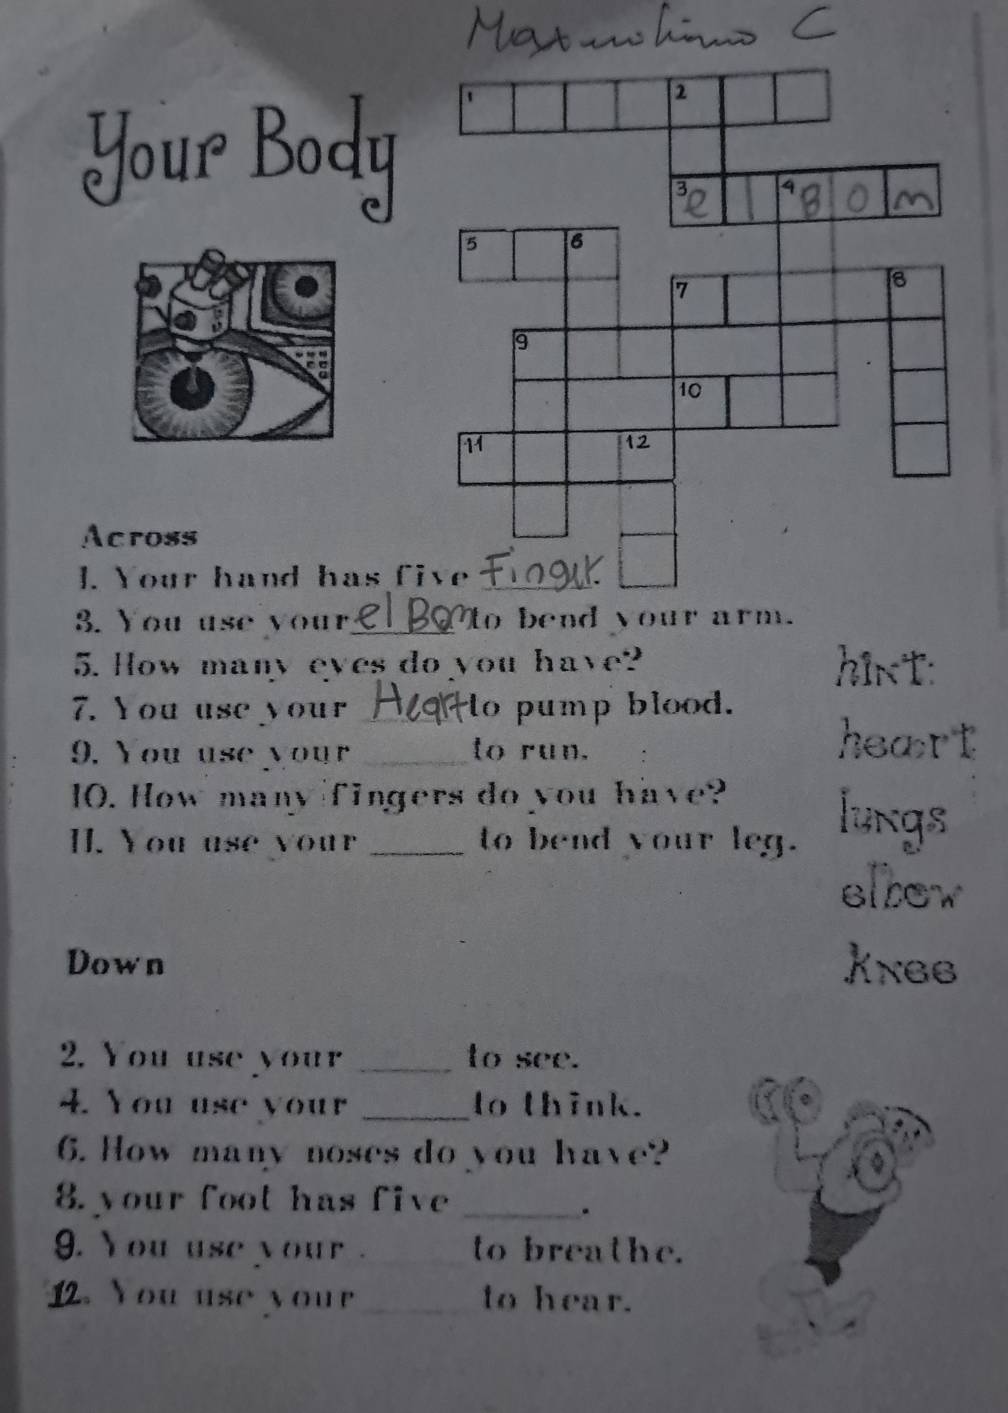 Your Body
1
2
3 e l 4 B o m
5
6
7
8
9
10
11
12
Across
1. Your hand has five Finger.
3. You use your el Bom to bend your arm.
5. How many eyes do you have?
7. You use your Heart to pump blood.
9. You use your ______ to run.
10. How many fingers do you have?
11. You use your ______ to bend your leg.
hint:
heart
lungs
elbow
knee
Down
2. You use your ______ to see.
4. You use your ______ to think.
6. How many noses do you have?
8. your foot has five ______.
9. You use your ______ to breathe.
12. You use your ______ to hear.